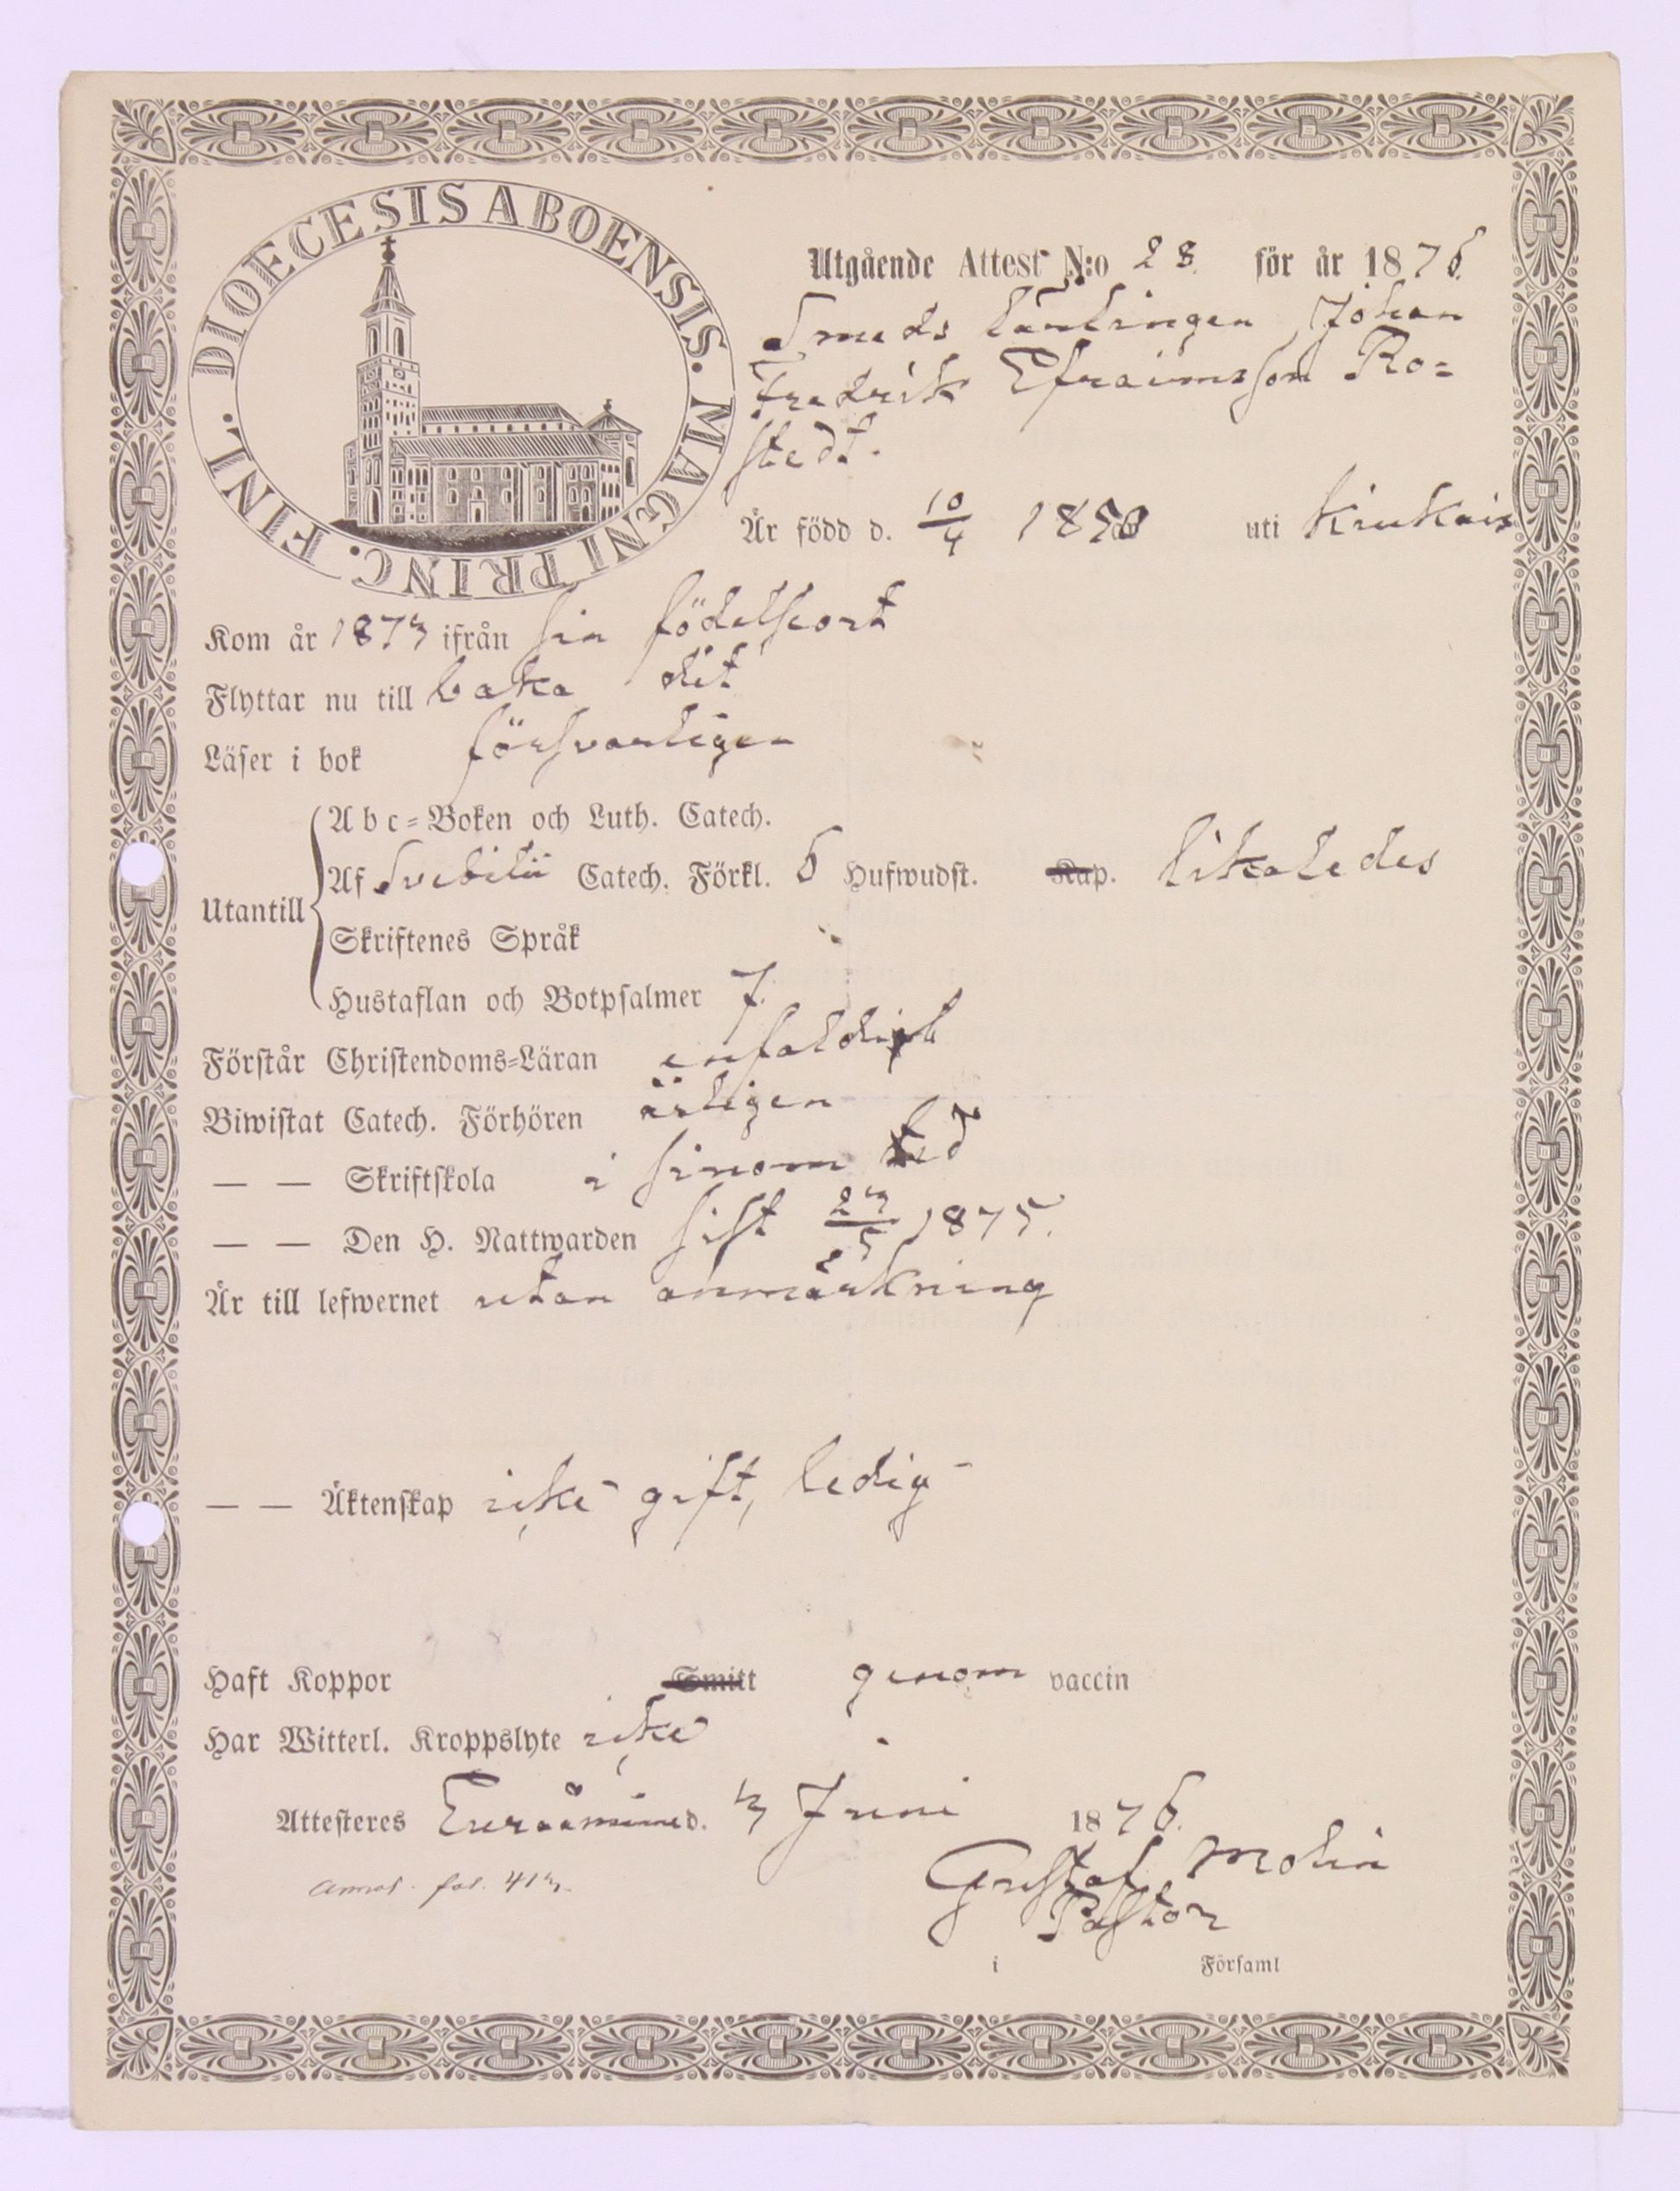 DIOECESIS ABOENSIS. MAGNI PRINC. FINL.
Utgående Attest N:o 28. för år 1876.
Smeds lärlingen Johan
Fredrik Efraimsson Ro=
stedt.
Är född d. 10/4 1850 uti Kiukais
Kom år 1873 ifrån sin födelseort
Flyttar nu till baka dit
Läser i bok försvarligen
Utantill
Abc=Boken och Luth. Catech.
Af Svebilii Catech. Förkl. 6 Hufwudst. Kap. likaledes
Skriftenes Språk
Hustaflan och Botpsalmer 7.
Förstår Christendoms=Läran enfaldigt
Biwistat Catech. Förhören årligen
— — Skriftskola i sinom tid
— — Den H. Nattwarden sist 23/5 1875.
Är till lefwernet utan anmärkning
— — Äktenskap icke gift, ledig
Haft Koppor Smitt genom vaccin
Har Witterl. Kroppslyte icke
Attesteres Euraåminne d. 3 Juni 1876.
Gustaf Molin
Pastor
annot. fol. 413.
i Församl